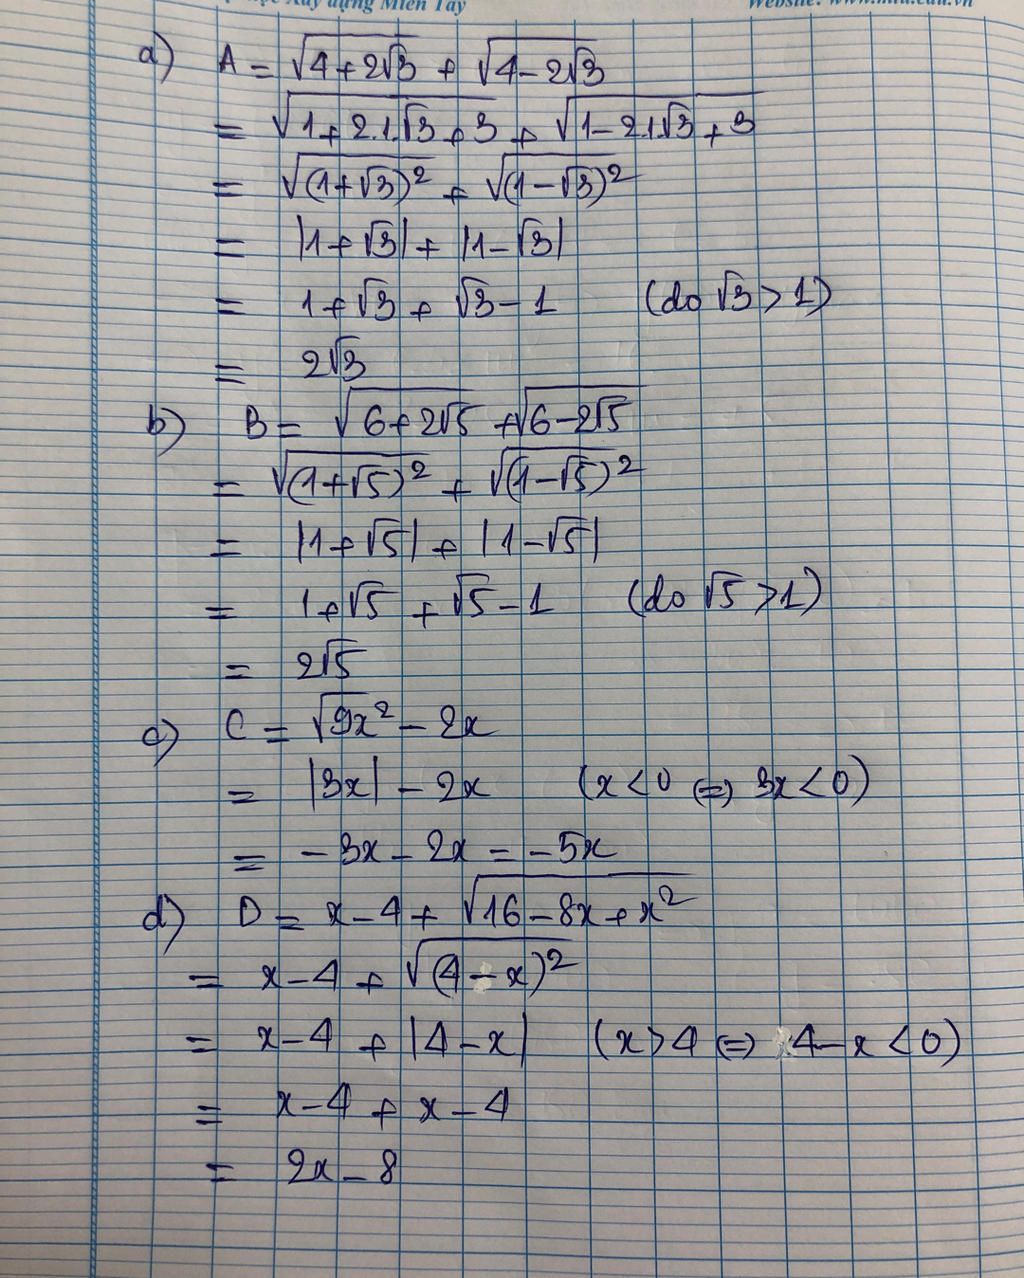 Xây dựng Miền Tây
Website: www.mtu.edu.vn
a) A = √(4+2√3) + √(4-2√3)
= √(1+2.1.√3+3) + √(1-2.1.√3+3)
= √((1+√3)²) + √((1-√3)²)
= |1+√3| + |1-√3|
= 1+√3 + √3-1 (do √3 > 1)
= 2√3
b) B = √(6+2√5) + √(6-2√5)
= √((1+√5)²) + √((1-√5)²)
= |1+√5| + |1-√5|
= 1+√5 + √5-1 (do √5 > 1)
= 2√5
c) C = √(9x²) - 2x
= |3x| - 2x (x<0 ⇔ 3x<0)
= -3x - 2x = -5x
d) D = x-4 + √(16-8x+x²)
= x-4 + √((4-x)²)
= x-4 + |4-x| (x>4 ⇔ 4-x<0)
= x-4 + x-4
= 2x-8